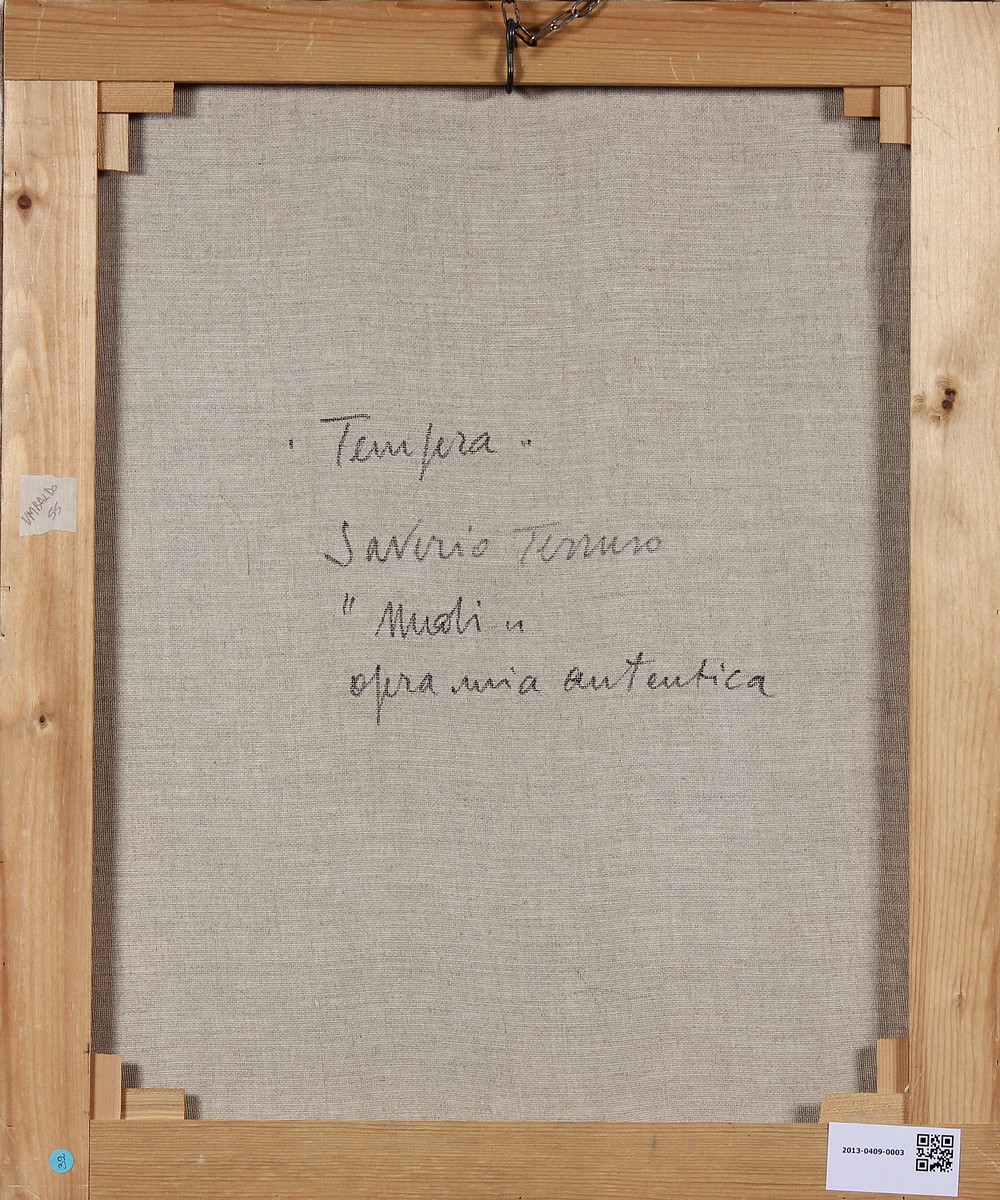 " Tempera "
Saverio Terruso
" Nudi "
opera mia autentica
UMBALDO
32
2013-0409-0003